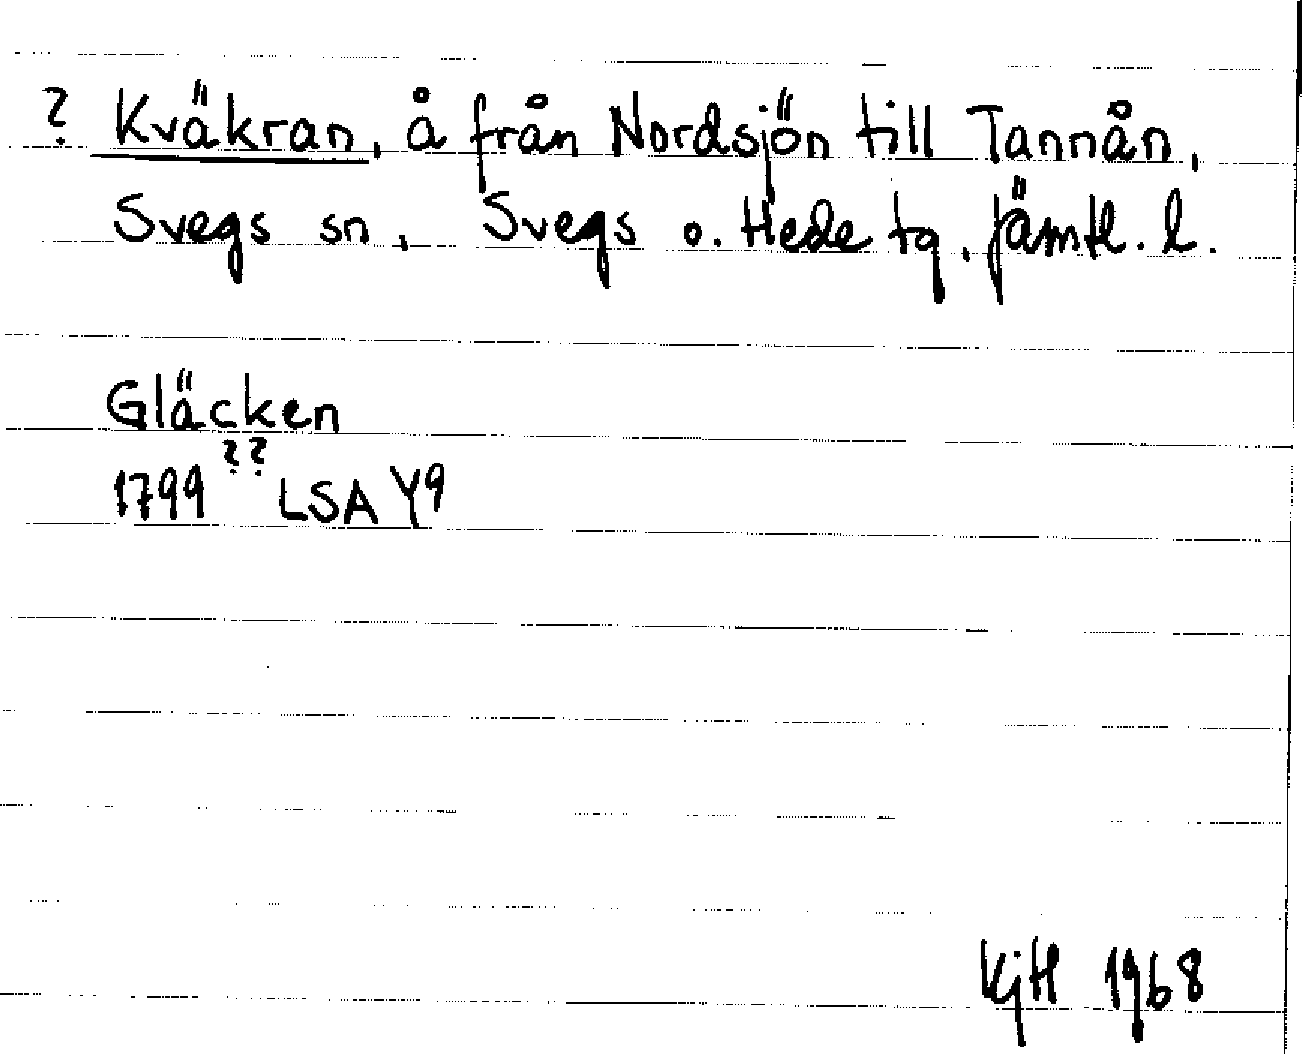 ? Kväkran, å från Nordsjön till Tannån,
Svegs sn, Svegs o. Hede tg, Jämtl. l.
Gläcken
??
1799 LSA Y9
KjH 1968